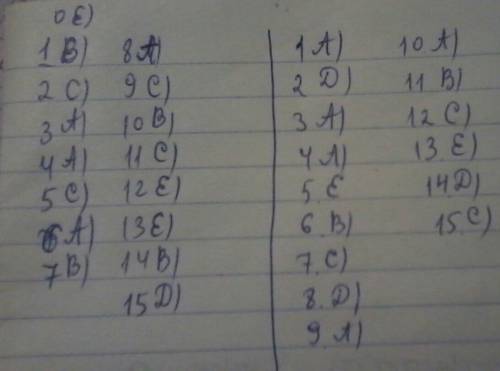 0 E)
1 B)
2 C)
3 A)
4 A)
5 C)
6 A)
7 B)
8 A)
9 C)
10 B)
11 C)
12 E)
13 E)
14 B)
15 D)
1 A)
2 D)
3 A)
4 A)
5. E
6. B)
7. C)
8. D)
9. A)
10 A)
11 B)
12 C)
13. E)
14. D)
15. C)